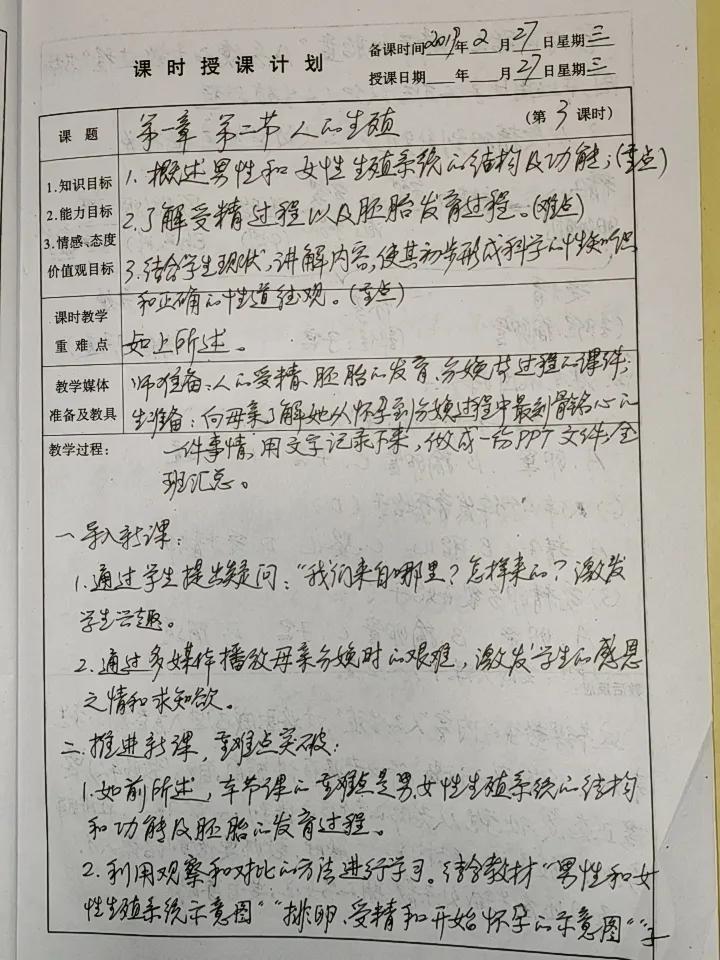 课时授课计划
备课时间2019年2月27日星期三
授课日期___年___月27日星期三
课题 第一章 第二节 人的生殖 (第3课时)
1.知识目标
2.能力目标
3.情感、态度
价值观目标
1. 概述男性和女性生殖系统的结构及功能;(重点)
2.了解受精过程以及胚胎发育过程。(难点)
3.结合学生现状,讲解内容,使其初步形成科学的性知识
和正确的性道德观。(重点)
课时教学
重难点
如上所述。
教学媒体
准备及教具
师准备:人的受精、胚胎的发育、分娩等过程的课件;
生准备:向母亲了解她从怀孕到分娩过程中最刻骨铭心的
教学过程: 一件事情,用文字记录下来,做成一份PPT文件,全
班汇总。
一.导入新课:
1.通过学生提出疑问:“我们来自哪里?怎样来的?激发
学生兴趣。
2.通过多媒体播放母亲分娩时的艰难,激发学生的感恩
之情和求知欲。
二.推进新课,重难点突破:
1.如前所述,本节课的重难点是男、女性生殖系统的结构
和功能及胚胎的发育过程。
2.利用观察和对比的方法进行学习。结合教材“男性和女
性生殖系统示意图”“排卵、受精和开始怀孕的示意图”“子